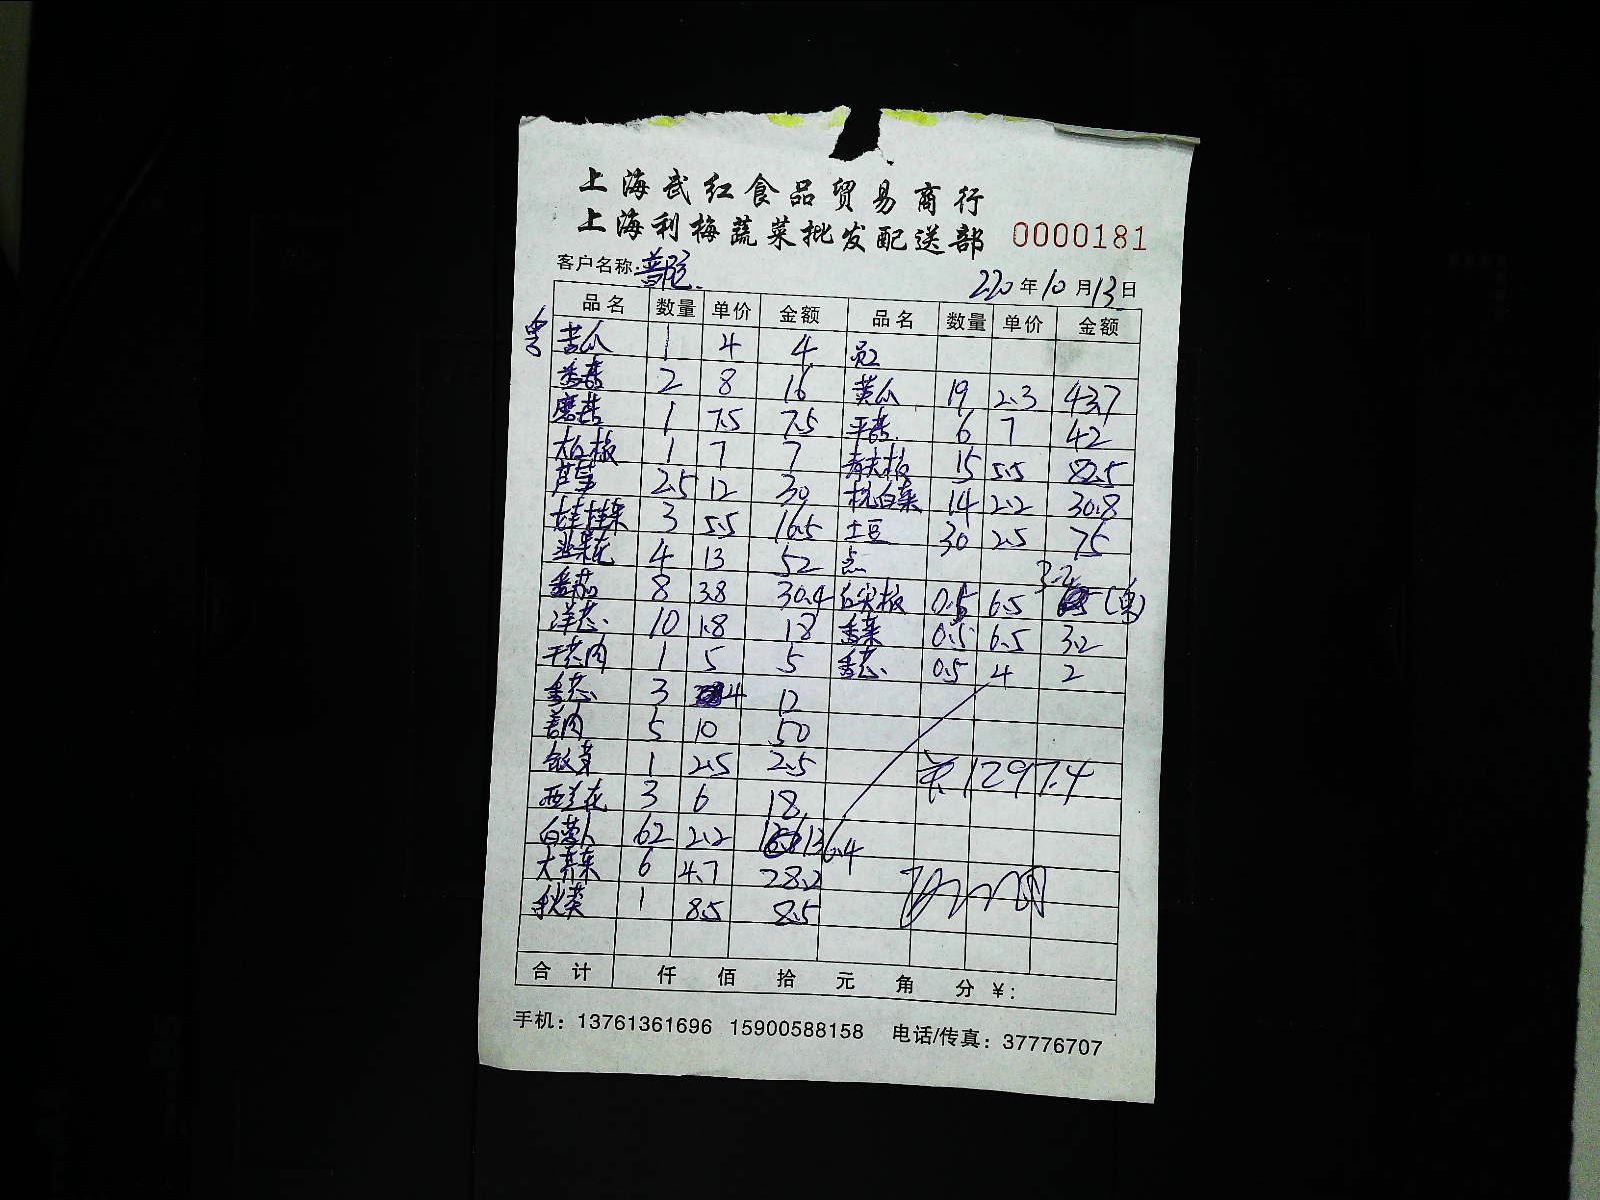 上海武红食品贸易商行
上海利梅蔬菜批发配送部 0000181
客户名称: 普陀
220年10月13日
品名 数量 单价 金额 品名 数量 单价 金额
苦瓜 1 4 4 员工
香菜 2 8 16 黄瓜 19 2.3 43.7
磨菇 1 7.5 7.5 平菇 6 7 42
大红椒 1 7 7 青尖椒 15 5.5 82.5
芦笋 2.5 12 30 杭白菜 14 2.2 30.8
3 5.5 16.5 土豆 30 2.5 75
韭菜花 4 13 52 点
番茄 8 3.8 30.4 红尖椒 0.5 6.5 3.2
洋葱 10 1.8 18 香菜 0.5 6.5 3.2
1 5 5 香葱 0.5 4 2
香葱 3 4 12
姜肉 5 10 50
银芽 1 2.5 2.5 1297.4
西兰花 3 6 18
白萝卜 62 2.2 136.4
6 4.7 28.2
秋葵 1 8.5 8.5
合计 仟 佰 拾 元 角 分 ¥:
手机: 13761361696 15900588158 电话/传真: 37776707